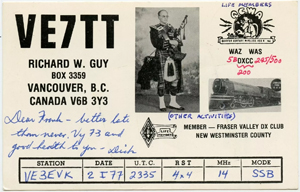 LIFE MEMBERS
VE7TT
RICHARD W. GUY
BOX 3359
VANCOUVER, B.C.
CANADA V6B 3Y3
WAZ WAS
DXCC
200
(OTHER ACTIVITIES)
Dear Frank - better late
than never. Vy 73 and
good health to you - Dick
MEMBER — FRASER VALLEY DX CLUB
NEW WESTMINSTER COUNTY
STATION DATE U.T.C. RST MHz MODE
VE3EVK 2 I 77 2335 4x4 14 SSB